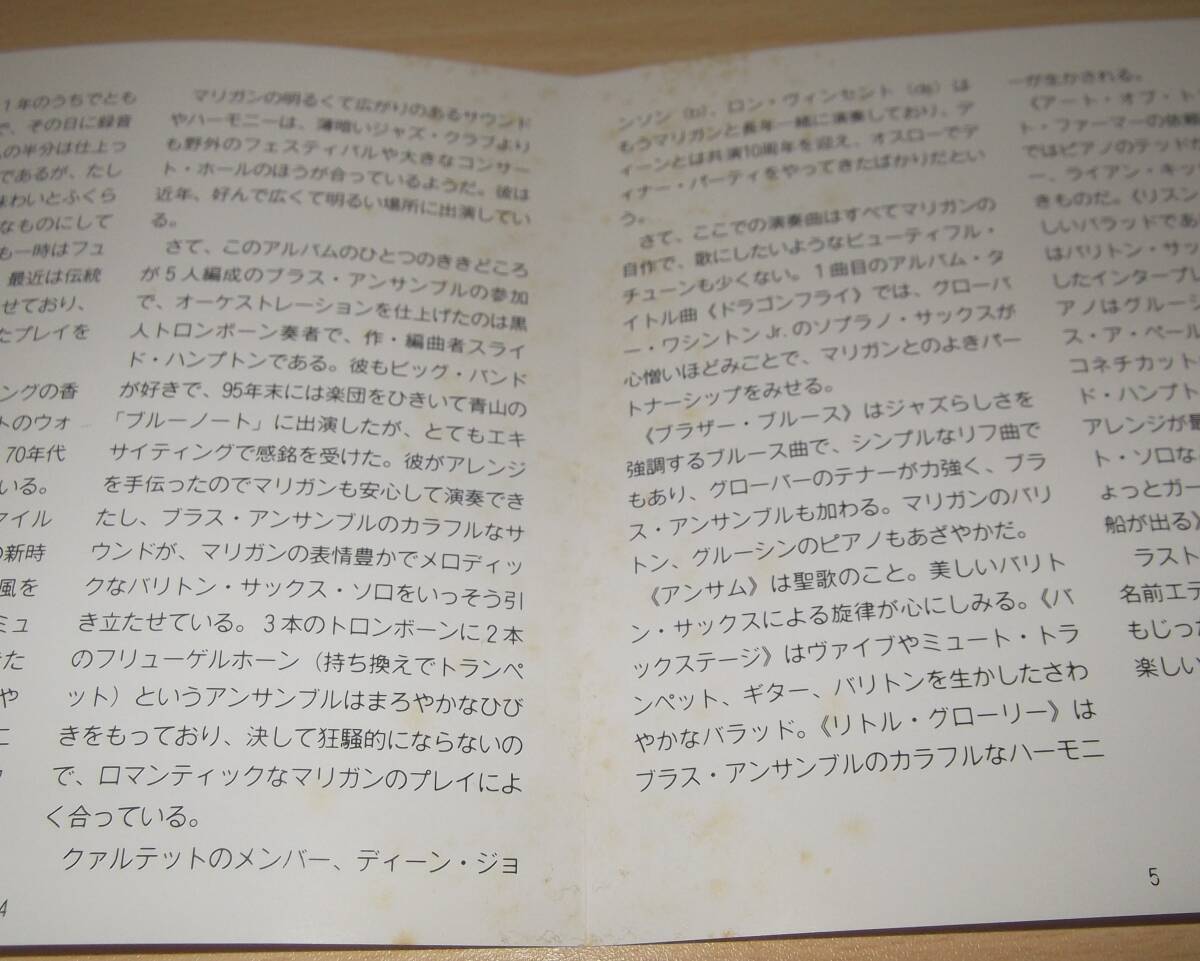 1年のうちでとも
で、その日に録音
の半分は仕上っ
であるが、たし
味わいとふくら
なものにして
も一時はフュ
最近は伝統
せており、
たプレイを
ングの香
トのウォ
70年代
いる。
ァイル
の新時
風を
ミュ
た
や
マリガンの明るくて広がりのあるサウンド
やハーモニーは、薄暗いジャズ・クラブより
も野外のフェスティバルや大きなコンサー
ト・ホールのほうが合っているようだ。彼は
近年、好んで広くて明るい場所に出演してい
る。
さて、このアルバムのひとつのききどころ
が5人編成のブラス・アンサンブルの参加
で、オーケストレーションを仕上げたのは黒
人トロンボーン奏者で、作・編曲者スライ
ド・ハンプトンである。彼もビッグ・バンド
が好きで、95年末には楽団をひきいて青山の
「ブルーノート」に出演したが、とてもエキ
サイティングで感銘を受けた。彼がアレンジ
を手伝ったのでマリガンも安心して演奏でき
たし、ブラス・アンサンブルのカラフルなサ
ウンドが、マリガンの表情豊かでメロディッ
クなバリトン・サックス・ソロをいっそう引
き立たせている。3本のトロンボーンに2本
のフリューゲルホーン（持ち換えでトランペ
ット）というアンサンブルはまろやかなひび
きをもっており、決して狂騒的にならないの
で、ロマンティックなマリガンのプレイによ
く合っている。
クァルテットのメンバー、ディーン・ジョ
4
ンソン（b）、ロン・ヴィンセント（ds）は
もうマリガンと長年一緒に演奏しており、デ
ィーンとは共演10周年を迎え、オスローでデ
ィナー・パーティをやってきたばかりだとい
う。
さて、ここでの演奏曲はすべてマリガンの
自作で、歌にしたいようなビューティフル・
チューンも少くない。1曲目のアルバム・タ
イトル曲《ドラゴンフライ》では、グローバ
ー・ワシントンJr.のソプラノ・サックスが
心憎いほどみごとで、マリガンとのよきパー
トナーシップをみせる。
《ブラザー・ブルース》はジャズらしさを
強調するブルース曲で、シンプルなリフ曲で
もあり、グローバーのテナーが力強く、ブラ
ス・アンサンブルも加わる。マリガンのバリ
トン、グルーシンのピアノもあざやかだ。
《アンサム》は聖歌のこと。美しいバリト
ン・サックスによる旋律が心にしみる。《バ
ックステージ》はヴァイブやミュート・トラ
ンペット、ギター、バリトンを生かしたさわ
やかなバラッド。《リトル・グローリー》は
ブラス・アンサンブルのカラフルなハーモニ
ーが生かされる。
《アート・オブ・ト
ト・ファーマーの依頼
ではピアノのテッドが
ー、ライアン・キッ
きものだ。《リスン
しいバラッドであ
はバリトン・サッ
したインタープレ
アノはグルーシ
ス・ア・ペール
コネチカット、
ド・ハンプト
アレンジが最
ト・ソロな
ょっとガー
船が出る》
ラスト
名前エデ
もじった
楽しい
5